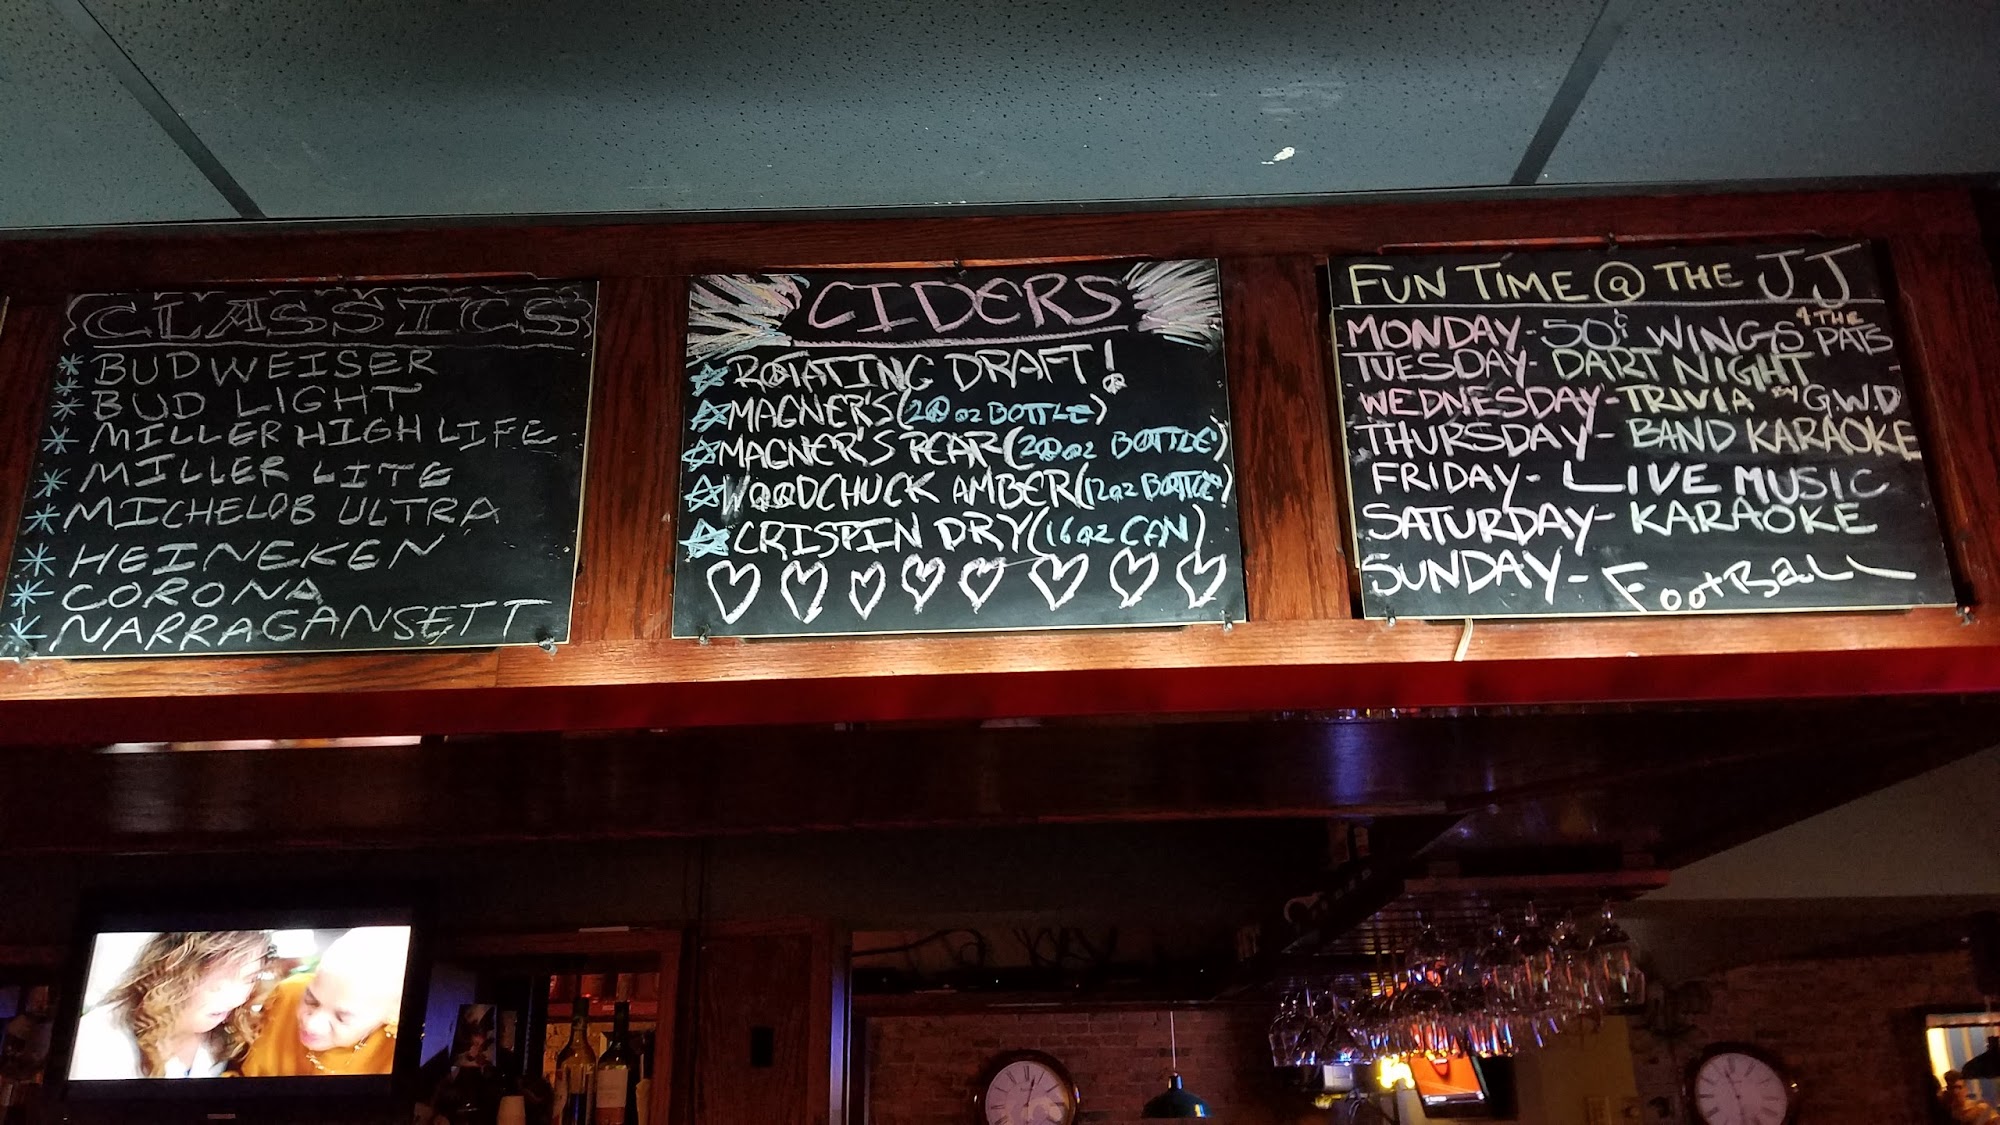 CLASSICS
BUDWEISER
BUD LIGHT
MILLER HIGH LIFE
MILLER LITE
MICHELOB ULTRA
HEINEKEN
CORONA
NARRAGANSETT
CIDERS
ROTATING DRAFT!
MAGNER'S (20oz BOTTLE)
MAGNER'S PEAR (20oz BOTTLE)
WOODCHUCK AMBER (12oz BOTTLE)
CRISPIN DRY (16oz CAN)
FUN TIME @ THE JJ
MONDAY - 50¢ WINGS & THE PATS
TUESDAY - DART NIGHT
WEDNESDAY - TRIVIA BY G.W.D
THURSDAY - BAND KARAOKE
FRIDAY - LIVE MUSIC
SATURDAY - KARAOKE
SUNDAY - FootBaLL